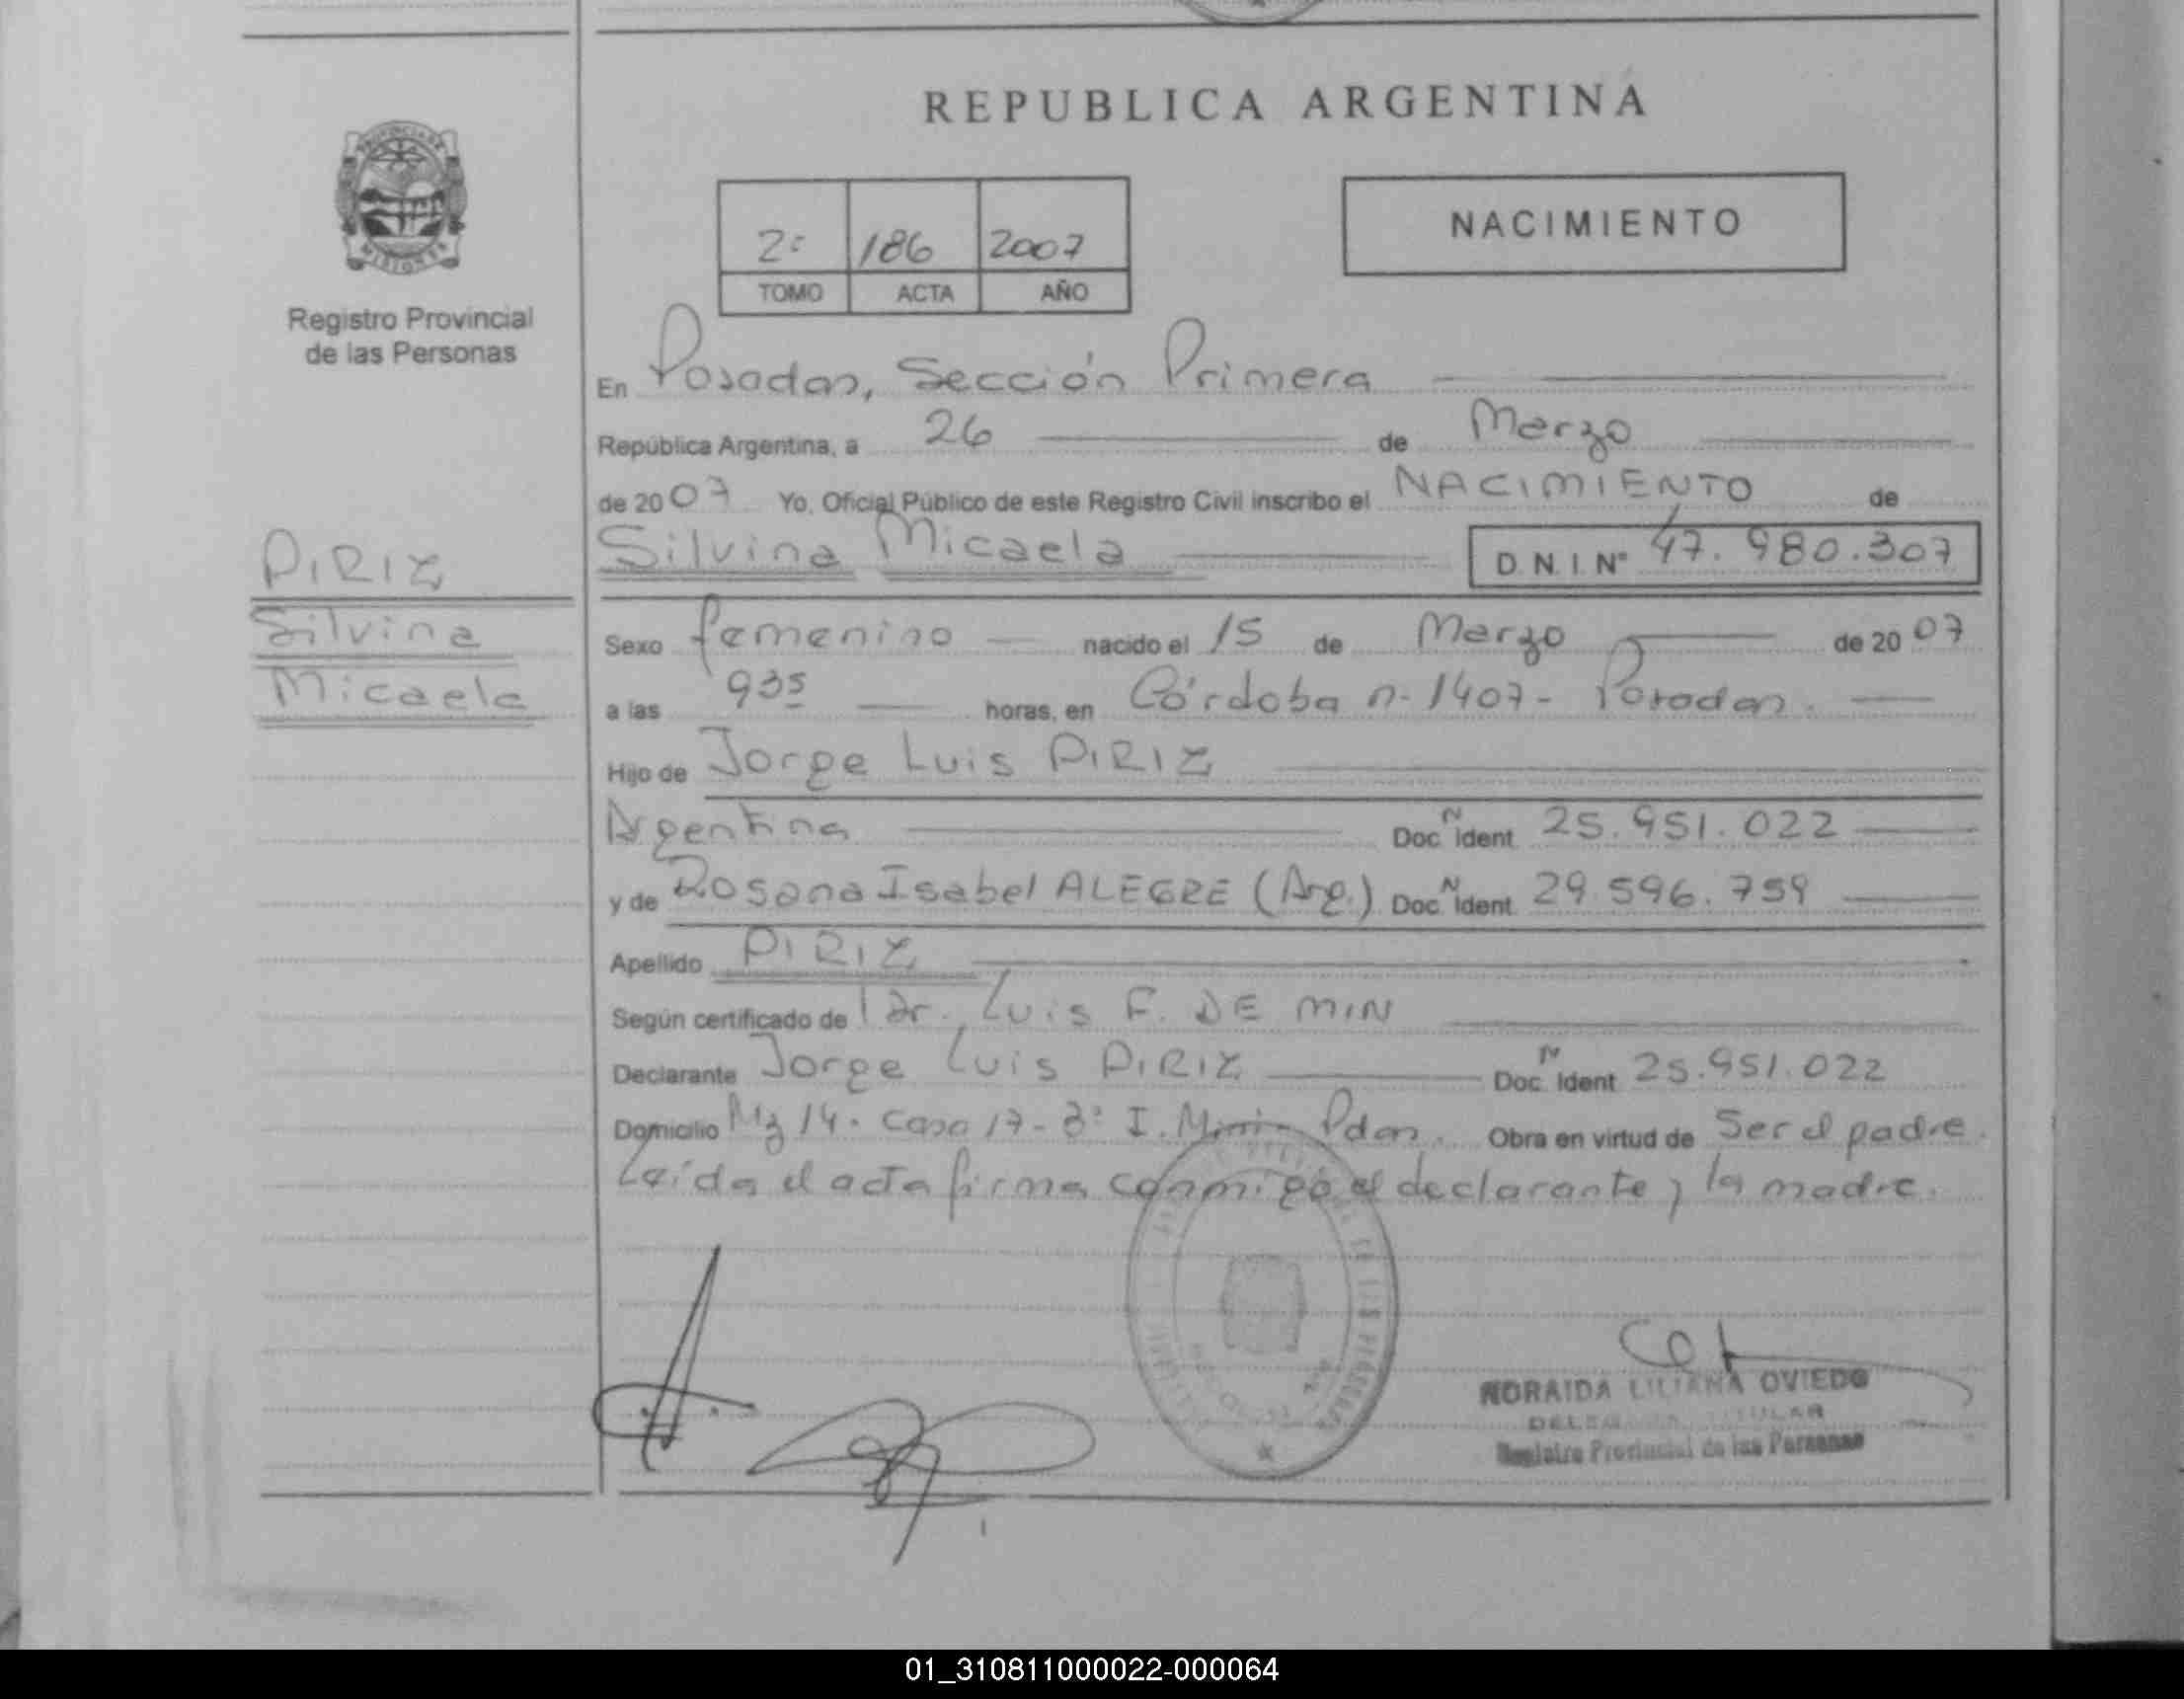 REPUBLICA ARGENTINA
PROVINCIA DE
MISIONES
Registro Provincial
de las Personas
2º 186 2007
TOMO ACTA AÑO
NACIMIENTO
En Posadas, Sección Primera
República Argentina, a 26 de Marzo
de 2007 Yo, Oficial Público de este Registro Civil inscribo el NACIMIENTO de
Silvina Micaela D.N.I. Nº 47.980.307
PIRIZ
Silvina
Micaela
Sexo femenino nacido el 15 de Marzo de 2007
a las 935 horas, en Córdoba n- 1407- Posadas.
Hijo de Jorge Luis PIRIZ
Argentina Doc. Ident. N 25.951.022
y de Rosana Isabel ALEGRE (Arg.) Doc. Ident. N 29.596.759
Apellido PIRIZ
Según certificado de l Dr. Luis F. DE MIN
Declarante Jorge Luis PIRIZ Doc. Ident N 25.951.022
Domicilio Mz 14. Casa 17- Bº I. Pdas. Obra en virtud de Ser el padre.
Leída el acta firma conmigo el declarante y la madre.
NORAIDA LILIANA OVIEDO
DELEGADA TITULAR
Registro Provincial de las Personas
01_310811000022-000064